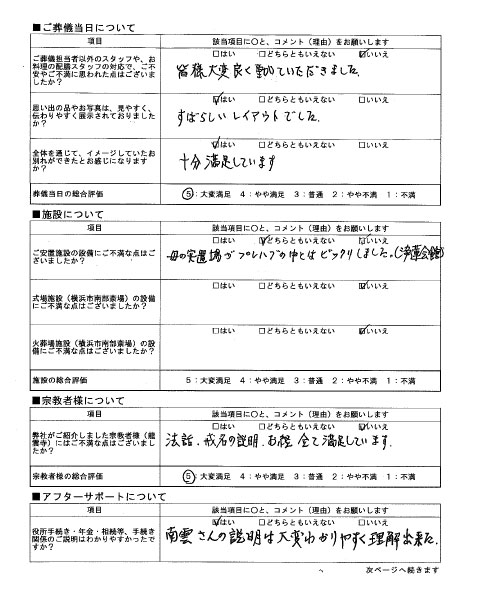 ■ご葬儀当日について
項目 該当項目に○と、コメント（理由）をお願いします
ご葬儀担当者以外のスタッフや、お
料理の配膳スタッフの対応で、ご不
安やご不満に思われた点はございま
したか？
□はい □どちらともいえない □いいえ
皆様大変良く動いていただきました。
思い出の品やお写真は、見やすく、
伝わりやすく展示されておりました
か？
☑はい □どちらともいえない □いいえ
すばらしいレイアウトでした。
全体を通じて、イメージしていたお
別れができたとお感じになります
か？
☑はい □どちらともいえない □いいえ
十分満足しています
葬儀当日の総合評価 ⑤：大変満足 4：やや満足 3：普通 2：やや不満 1：不満
■施設について
項目 該当項目に○と、コメント（理由）をお願いします
ご安置施設の設備にご不満な点はご
ざいましたか？
□はい ☑どちらともいえない □いいえ
母の安置場がプレハブの中とはビックリしました。
式場施設（横浜市南部斎場）の設備
にご不満な点はございましたか？
□はい □どちらともいえない ☑いいえ
火葬場施設（横浜市南部斎場）の設
備にご不満な点はございましたか？
□はい □どちらともいえない ☑いいえ
施設の総合評価 5：大変満足 4：やや満足 3：普通 2：やや不満 1：不満
■宗教者様について
項目 該当項目に○と、コメント（理由）をお願いします
弊社がご紹介しました宗教者様（龍
雲寺）にはご不満な点はございまし
たか？
□はい □どちらともいえない ☑いいえ
法話、戒名の説明、お経、全て満足しています。
宗教者様の総合評価 ⑤：大変満足 4：やや満足 3：普通 2：やや不満 1：不満
■アフターサポートについて
項目 該当項目に○と、コメント（理由）をお願いします
役所手続き・年金・相続等、手続き
関係のご説明はわかりやすかったで
すか？
☑はい □どちらともいえない □いいえ
南雲さんの説明は大変わかりやすく理解出来た。
次ページへ続きます